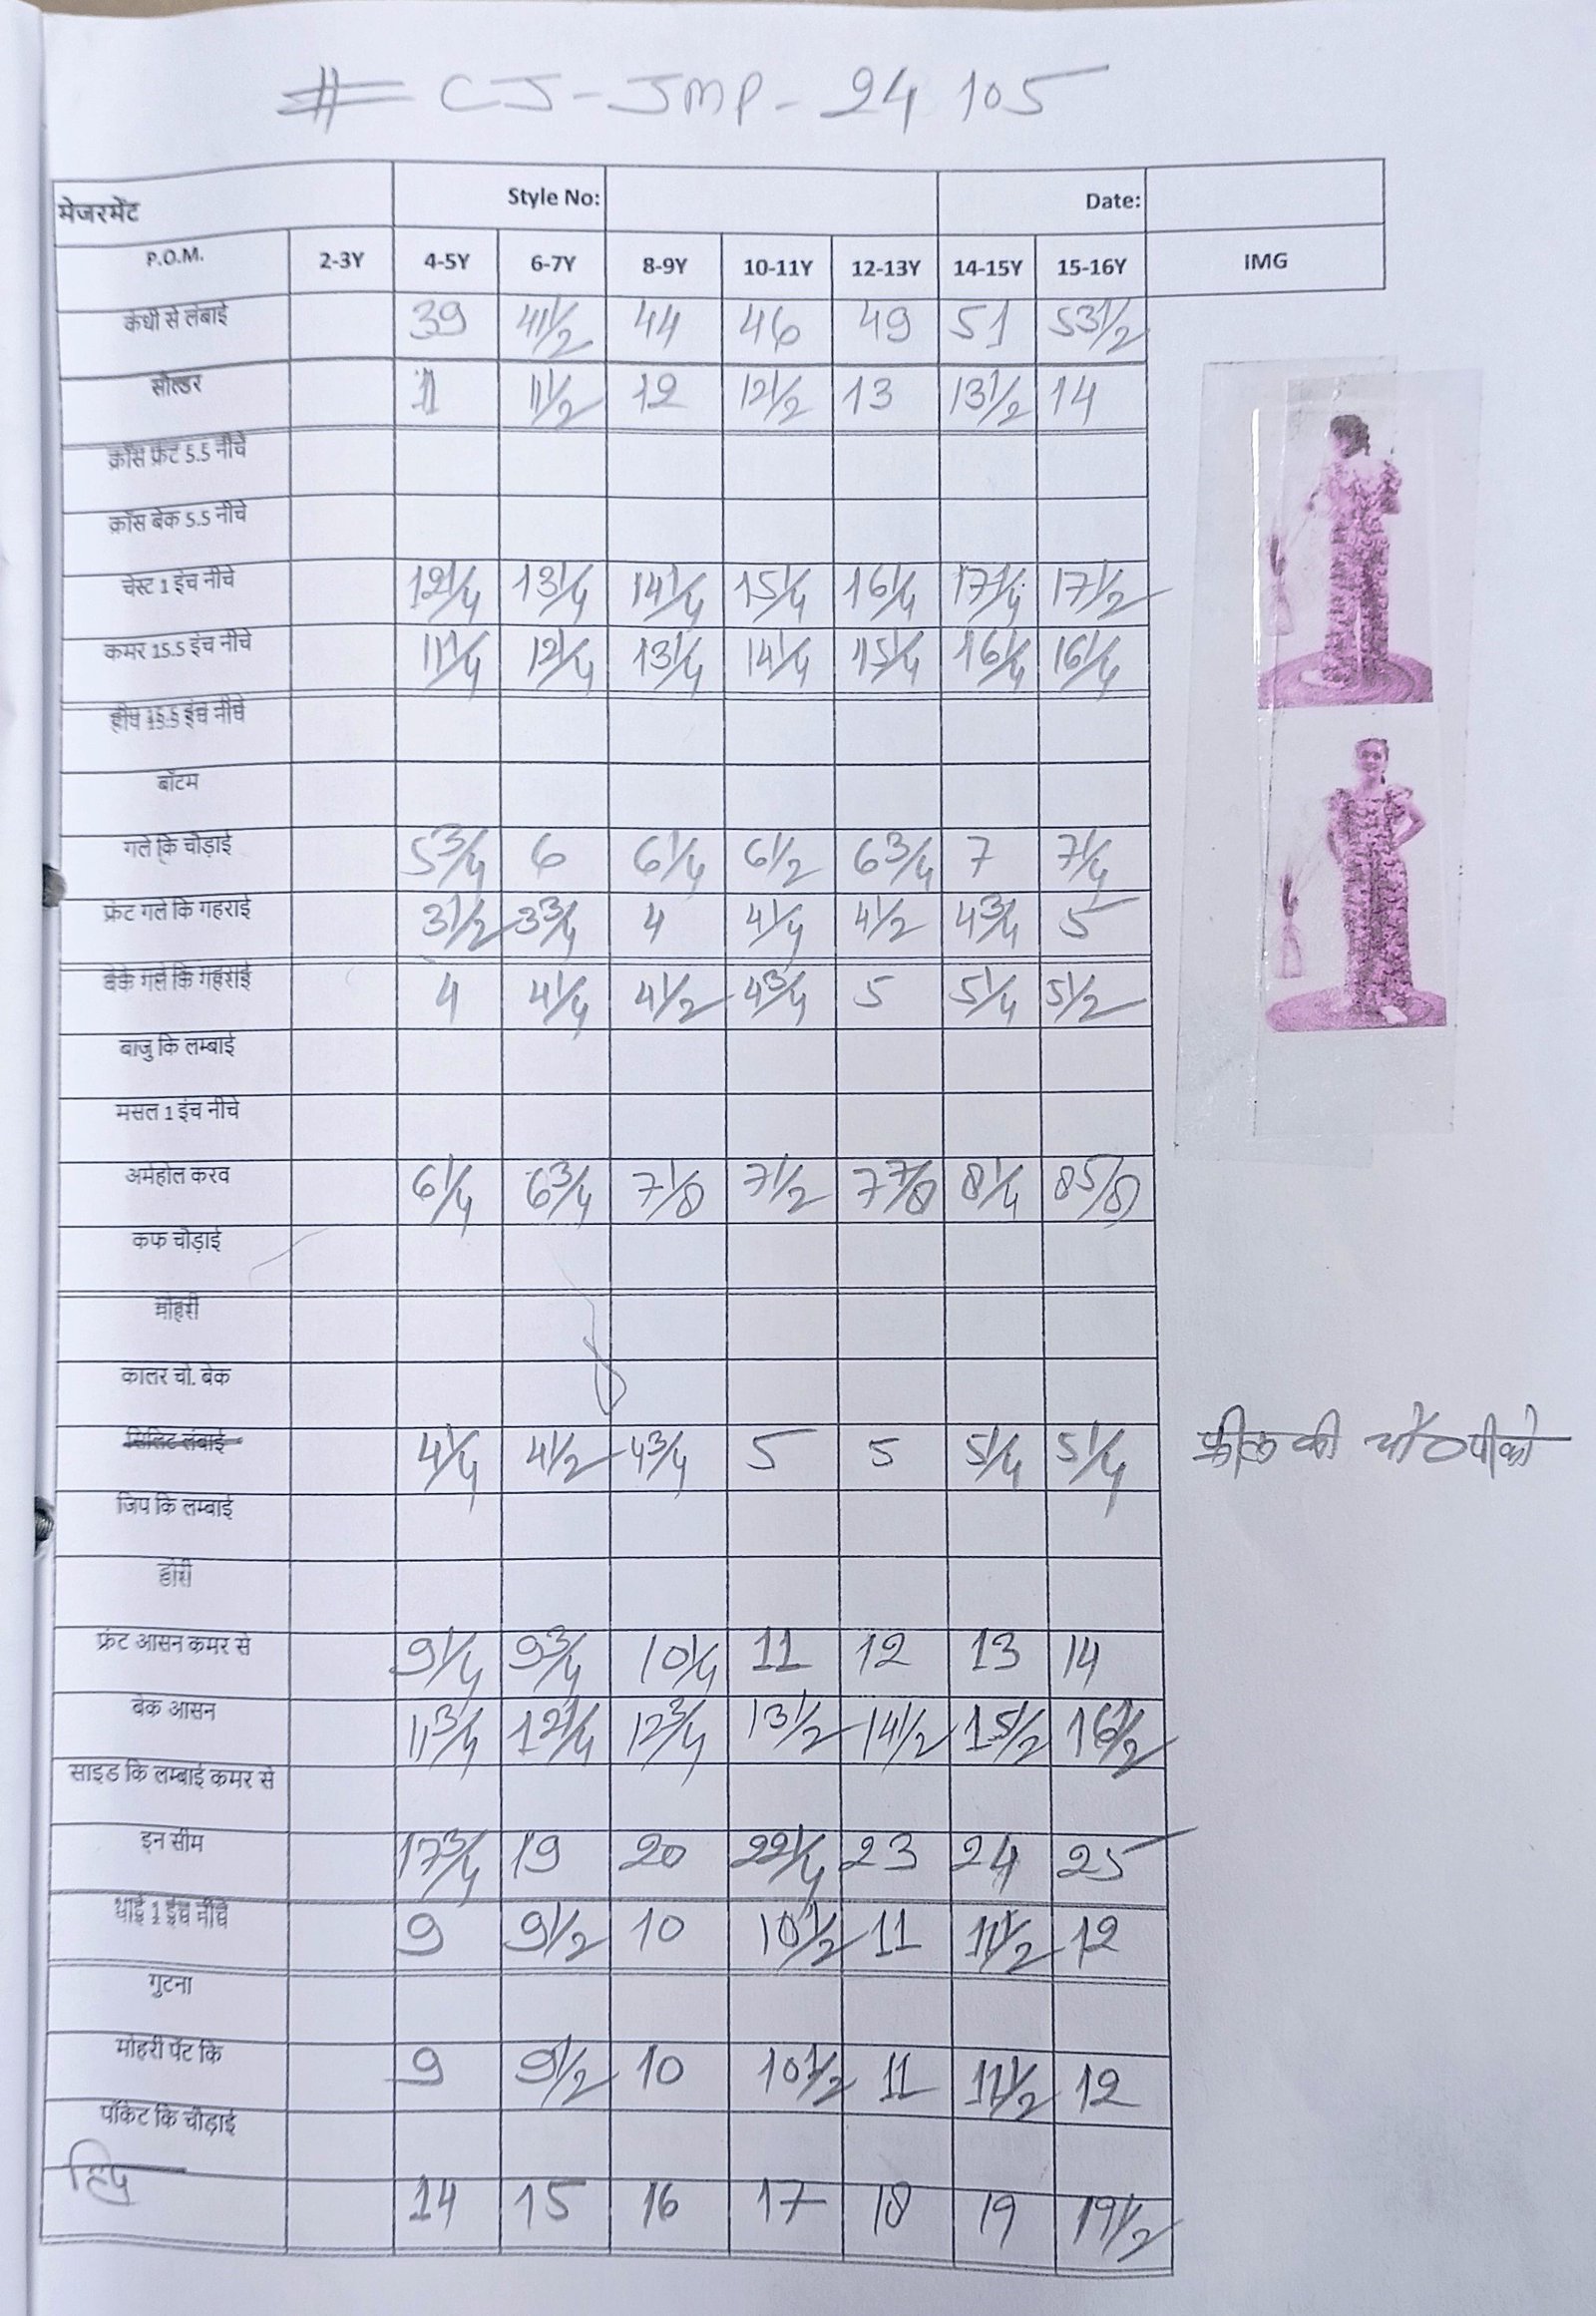 # CJ-JMP-24105
मेजरमेंट Style No: Date:
P.O.M. 2-3Y 4-5Y 6-7Y 8-9Y 10-11Y 12-13Y 14-15Y 15-16Y IMG
कंधी से लंबाई 39 41 1/2 44 46 49 51 53 1/2
सोल्डर 11 11 1/2 12 12 1/2 13 13 1/2 14
क्रॉस फ्रंट 5.5 नीचे
क्रॉस बेक 5.5 नीचे
चेस्ट 1 इंच नीचे 12 1/4 13 1/4 14 1/4 15 1/4 16 1/4 17 1/4 17 1/2
कमर 15.5 इंच नीचे 11 1/4 12 1/4 13 1/4 14 1/4 15 1/4 16 1/4 16 1/4
हीप 15.5 इंच नीचे
बॉटम
गले कि चोड़ाई 5 3/4 6 6 1/4 6 1/2 6 3/4 7 7 1/4
फ्रंट गले कि गहराई 3 1/2 3 3/4 4 4 1/4 4 1/2 4 3/4 5
बेक गले कि गहराई 4 4 1/4 4 1/2 4 3/4 5 5 1/4 5 1/2
बाजु कि लम्बाई
मसल 1 इंच नीचे
अर्महोल करव 6 1/4 6 3/4 7 1/8 7 1/2 7 7/8 8 1/4 8 5/8
कफ चोड़ाई
मोहरी
कालर चो. बेक
सिलिट लंबाई 4 1/4 4 1/2 4 3/4 5 5 5 1/4 5 1/4 की
जिप कि लम्बाई
डोरी
फ्रंट आसन कमर से 9 1/4 9 3/4 10 1/4 11 12 13 14
बेक आसन 11 3/4 12 1/4 12 3/4 13 1/2 14 1/2 15 1/2 16 1/2
साइड कि लम्बाई कमर से
इन सीम 17 3/4 19 20 22 1/4 23 24 25
थाई 1 इंच नीचे 9 9 1/2 10 10 1/2 11 11 1/2 12
गुटना
मोहरी पेंट कि 9 9 1/2 10 10 1/2 11 11 1/2 12
पॉकेट कि चौड़ाई
हिप 14 15 16 17 18 19 19 1/2